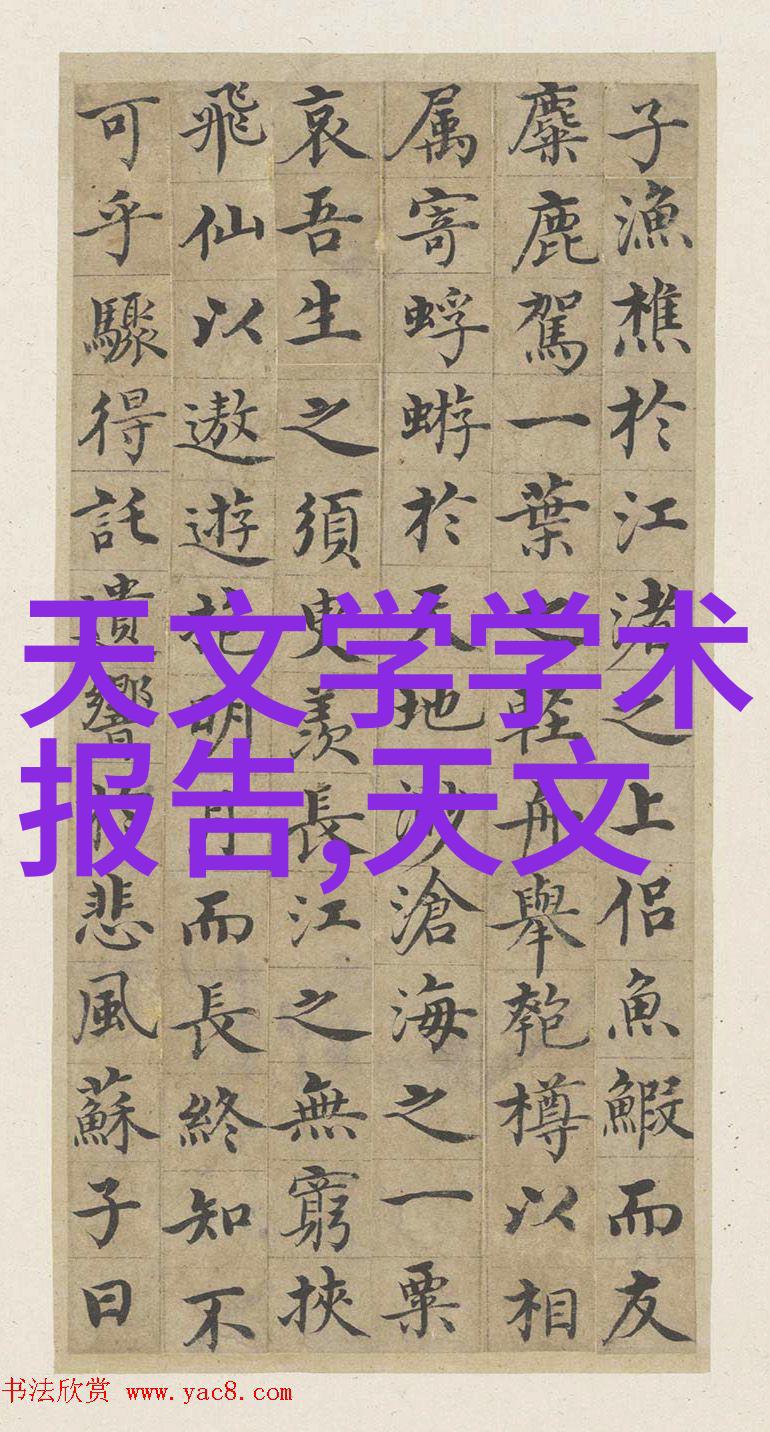 子漁樵於江渚之上侶魚鰕而友
麋鹿駕一葉之輕舟舉匏樽以相
属寄蜉蝣於天地渺滄海之一粟
哀吾生之須臾羨長江之無窮挾
飛仙以遨遊抱明月而長終知不
可乎驟得託遺響於悲風蘇子曰
天文学学术
报告,天文
书法欣赏 www.yac8.com